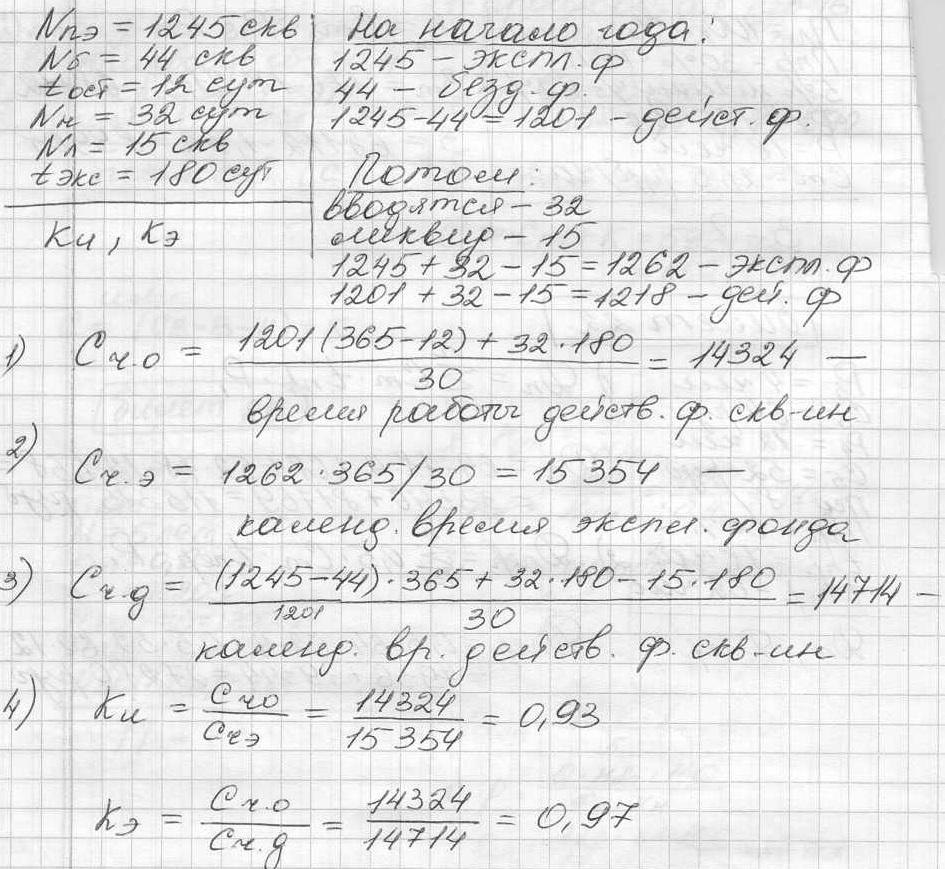 Nпэ = 1245 скв
Nб = 44 скв
tост = 12 сут
Nн = 32 сут
Nл = 15 скв
tэкс = 180 сут
Ки, Кэ
На начало года:
1245 – экспл. ф
44 – безд. ф.
1245-44 = 1201 – дейст. ф.
Потом:
вводятся – 32
ликвид – 15
1245 + 32 – 15 = 1262 – экспл. ф
1201 + 32 – 15 = 1218 – дей. ф
1) Сч.о = 1201(365-12) + 32·180 / 30 = 14324 —
время работы действ. ф. скв-ин
2) Сч.э = 1262·365/30 = 15354 —
календ. время экспл. фонда
3) Сч.д = (1245-44)·365 + 32·180 – 15·180 / 30 = 14714 –
1201
календ. вр. действ. ф. скв-ин
4) Ки = Счо / Счэ = 14324 / 15354 = 0,93
Кэ = Сч.о / Сч.д = 14324 / 14714 = 0,97